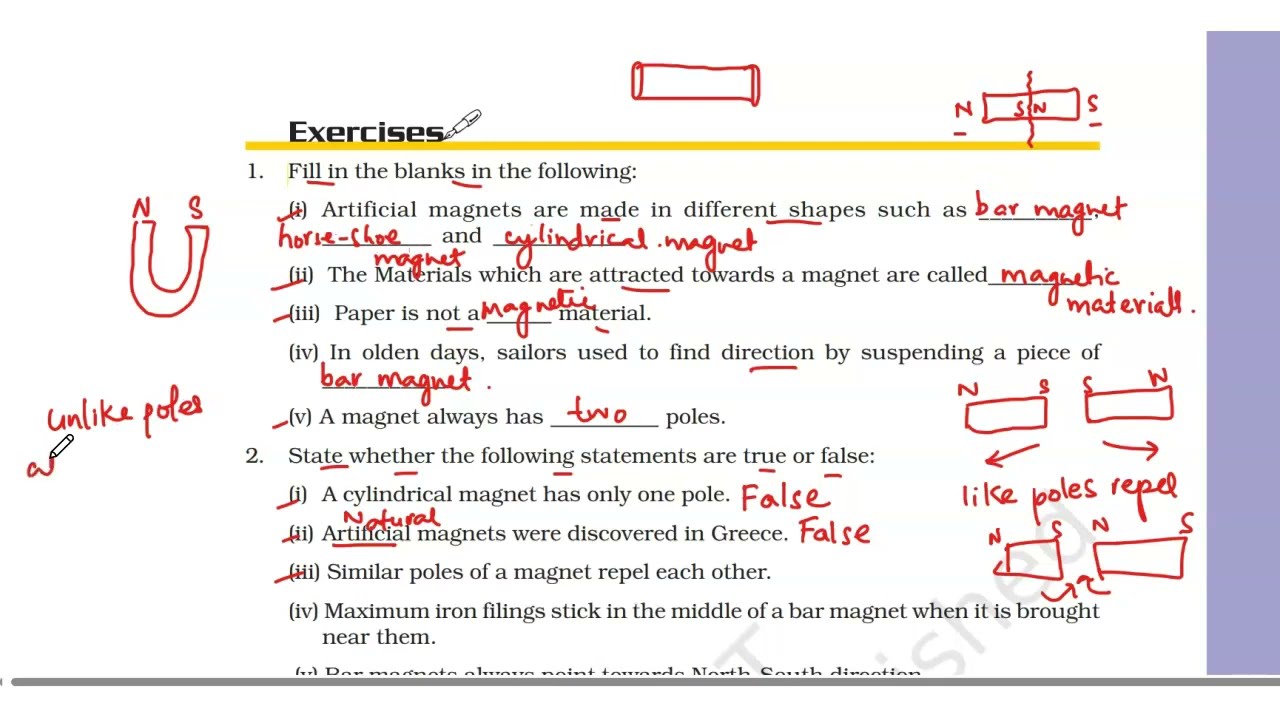 N S N S
Exercises
1. Fill in the blanks in the following:
N S
(i) Artificial magnets are made in different shapes such as bar magnet,
horse-shoe magnet and cylindrical magnet
(ii) The Materials which are attracted towards a magnet are called magnetic materials.
(iii) Paper is not a magnetic material.
(iv) In olden days, sailors used to find direction by suspending a piece of
bar magnet.
N S S N
unlike poles
(v) A magnet always has two poles.
2. State whether the following statements are true or false:
(i) A cylindrical magnet has only one pole. False
like poles repel
Natural
(ii) Artificial magnets were discovered in Greece. False
N S N S
(iii) Similar poles of a magnet repel each other.
(iv) Maximum iron filings stick in the middle of a bar magnet when it is brought
near them.
(v) Bar magnets always point towards North-South direction.